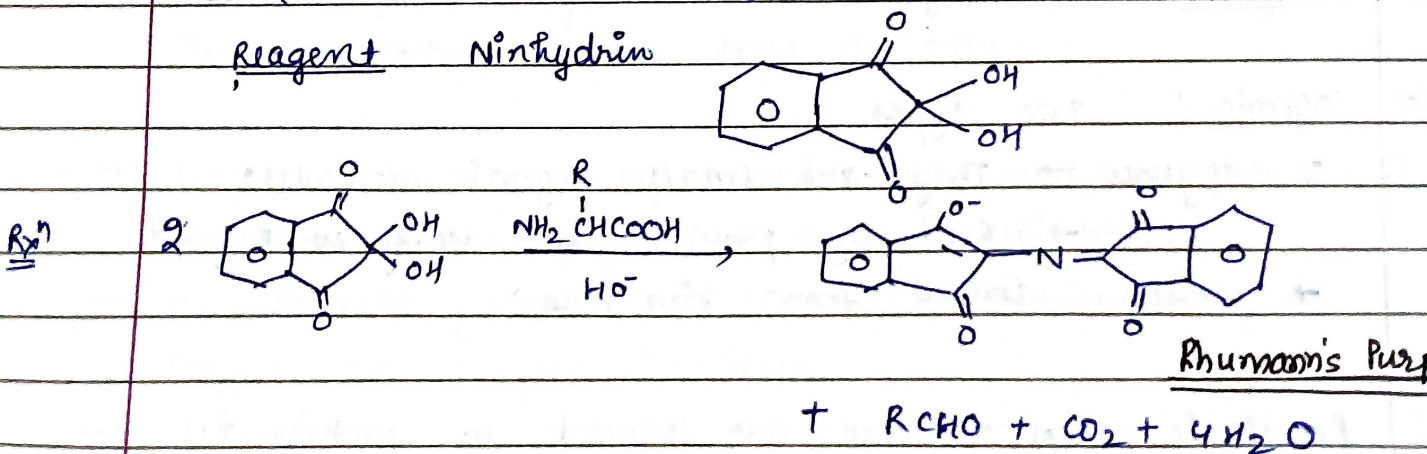 Reagent Ninhydrin
O
OH
OH
O
Rxⁿ 2 O OH OH O R NH₂ CHCOOH HO⁻ O⁻ O N O O
Rhumann's Purp
+ RCHO + CO₂ + 4H₂O